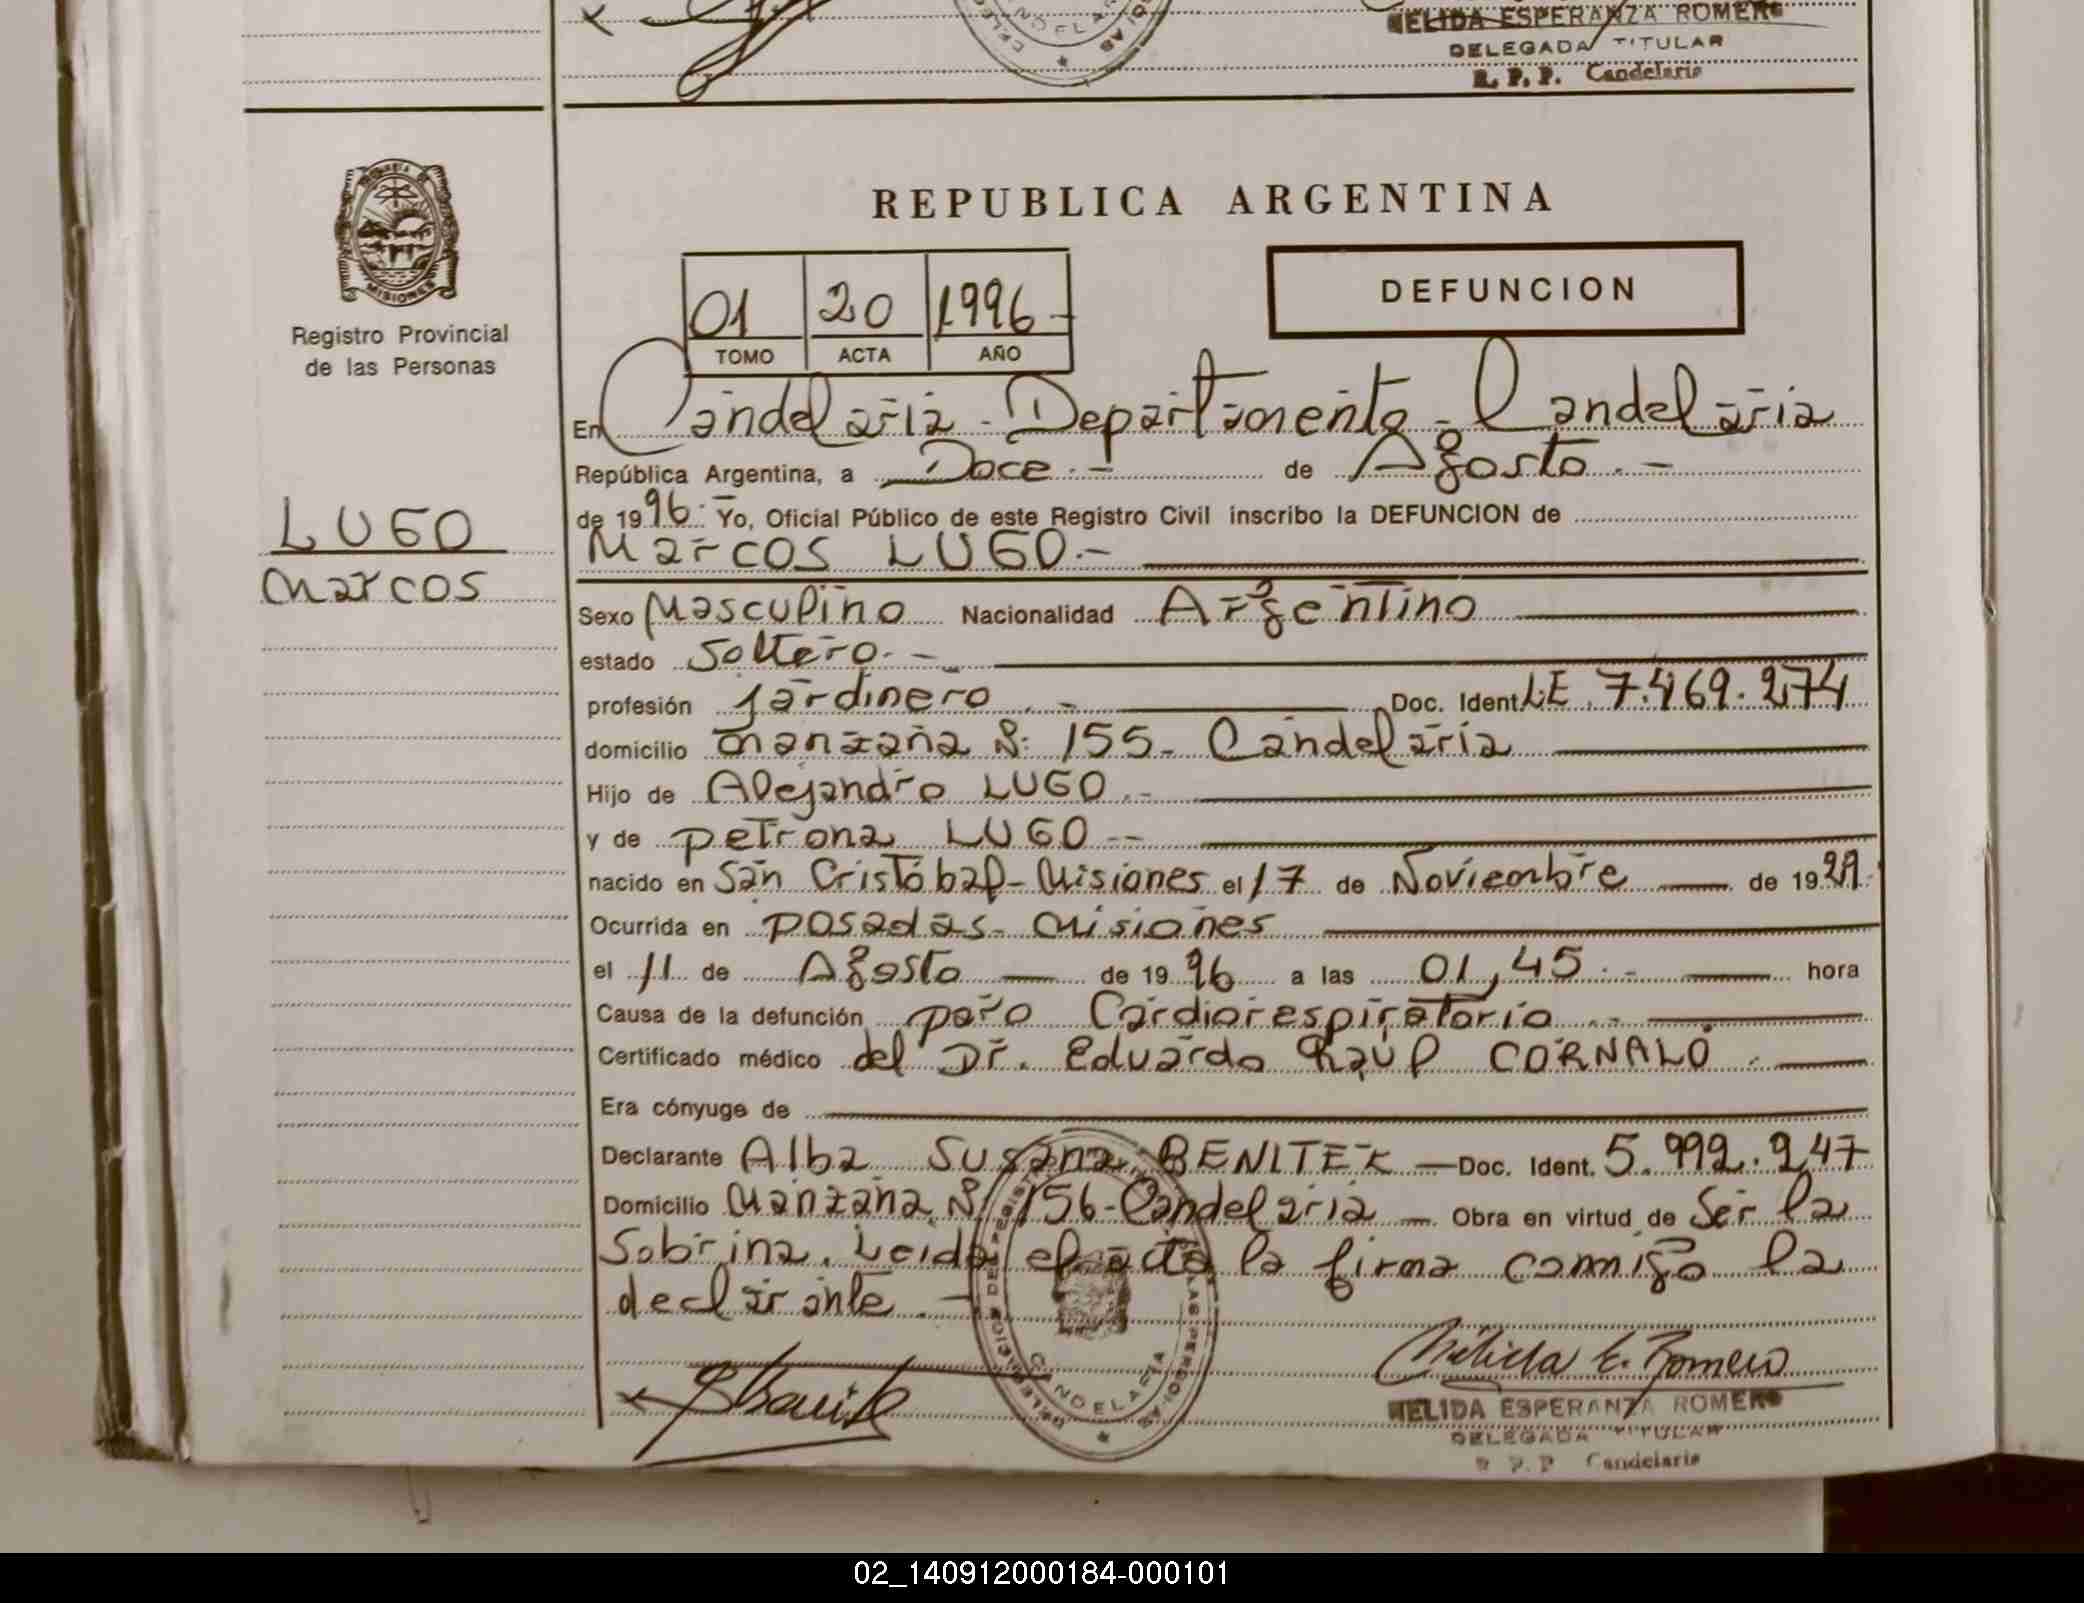 NELIDA ESPERANZA ROMERO
DELEGADA TITULAR
R. P. P. Candelaria
CANDELARIA
MISIONES
Registro Provincial
de las Personas
REPUBLICA ARGENTINA
01 20 1996.-
TOMO ACTA AÑO
DEFUNCION
En Candelaria - Departamento - Candelaria
República Argentina, a Doce.- de Agosto.-
de 1996. Yo, Oficial Público de este Registro Civil inscribo la DEFUNCION de
LUGO
Marcos
Marcos LUGO.-
Sexo Masculino Nacionalidad Argentino
estado Soltero.-
profesión Jardinero.- Doc. Ident. LE. 7.469.274
domicilio manzana Nº: 155- Candelaria
Hijo de Alejandro LUGO.-
y de petrona LUGO--
nacido en San Cristóbal- Misiones el 17 de Noviembre de 1929.
Ocurrida en posadas- Misiones
el 11 de Agosto de 1996 a las 01,45.- hora
Causa de la defunción paro Cardiorespiratorio.-
Certificado médico del Dr. Eduardo Raul CORNALO.
Era cónyuge de
Declarante Alba Susana BENITEZ — Doc. Ident. 5.992.247
Domicilio Manzana Nº 156- Candelaria — Obra en virtud de Ser la
Sobrina. Leida el acta la firma conmigo la
declarante.-
CANDELARIA
Nélida E. Romero
NELIDA ESPERANZA ROMERO
DELEGADA TITULAR
R. P. P. Candelaria
02_140912000184-000101